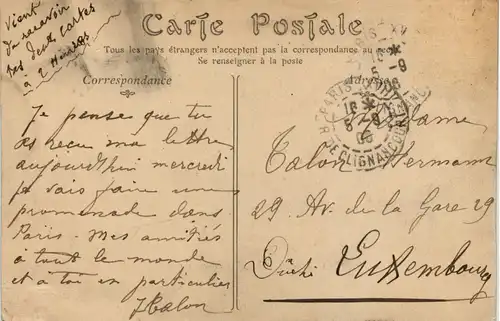 Vient
de recevoir
tes deux cartes
à 2 heures
Carte Postale
Tous les pays étrangers n'acceptent pas la correspondance au
Se renseigner à la poste
Correspondance
Je pense que tu
as recu ma lettre
aujourd'hui mercredi
je vais faire une
promenade dans
Paris. Mes amitiés
à tout le monde
et à toi en particulier
J Calon
Madame
Calon Hermann
29 Av. de la Gare 29
Duché Luxembourg
PARIS
16
5 - 9
06
CLIGNANCOURT